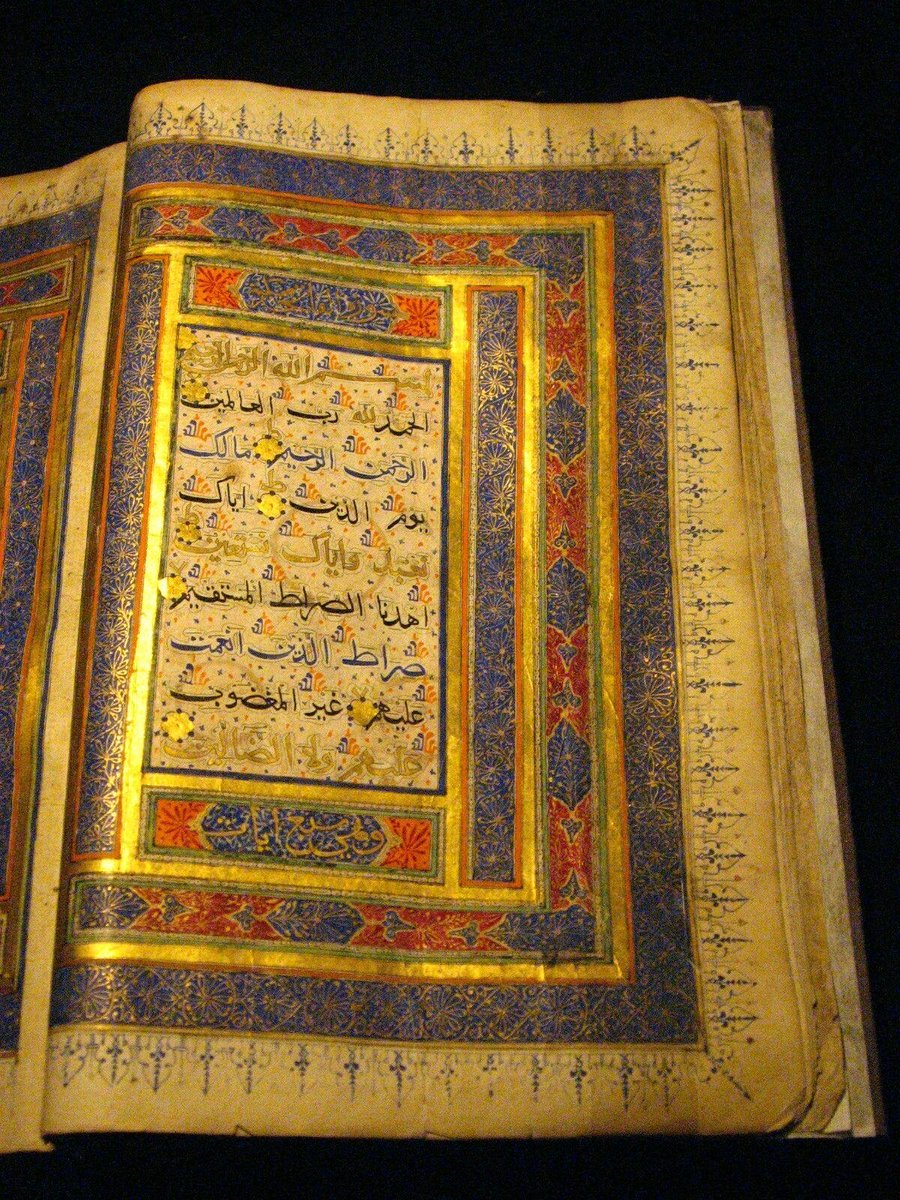 بسم الله الرحمن الرحيم
الحمد لله رب العالمين
الرحمن الرحيم مالك
يوم الدين اياك
نعبد واياك نستعين
اهدنا الصراط المستقيم
صراط الذين انعمت
عليهم غير المغضوب
عليهم ولا الضالين
سبع ايات